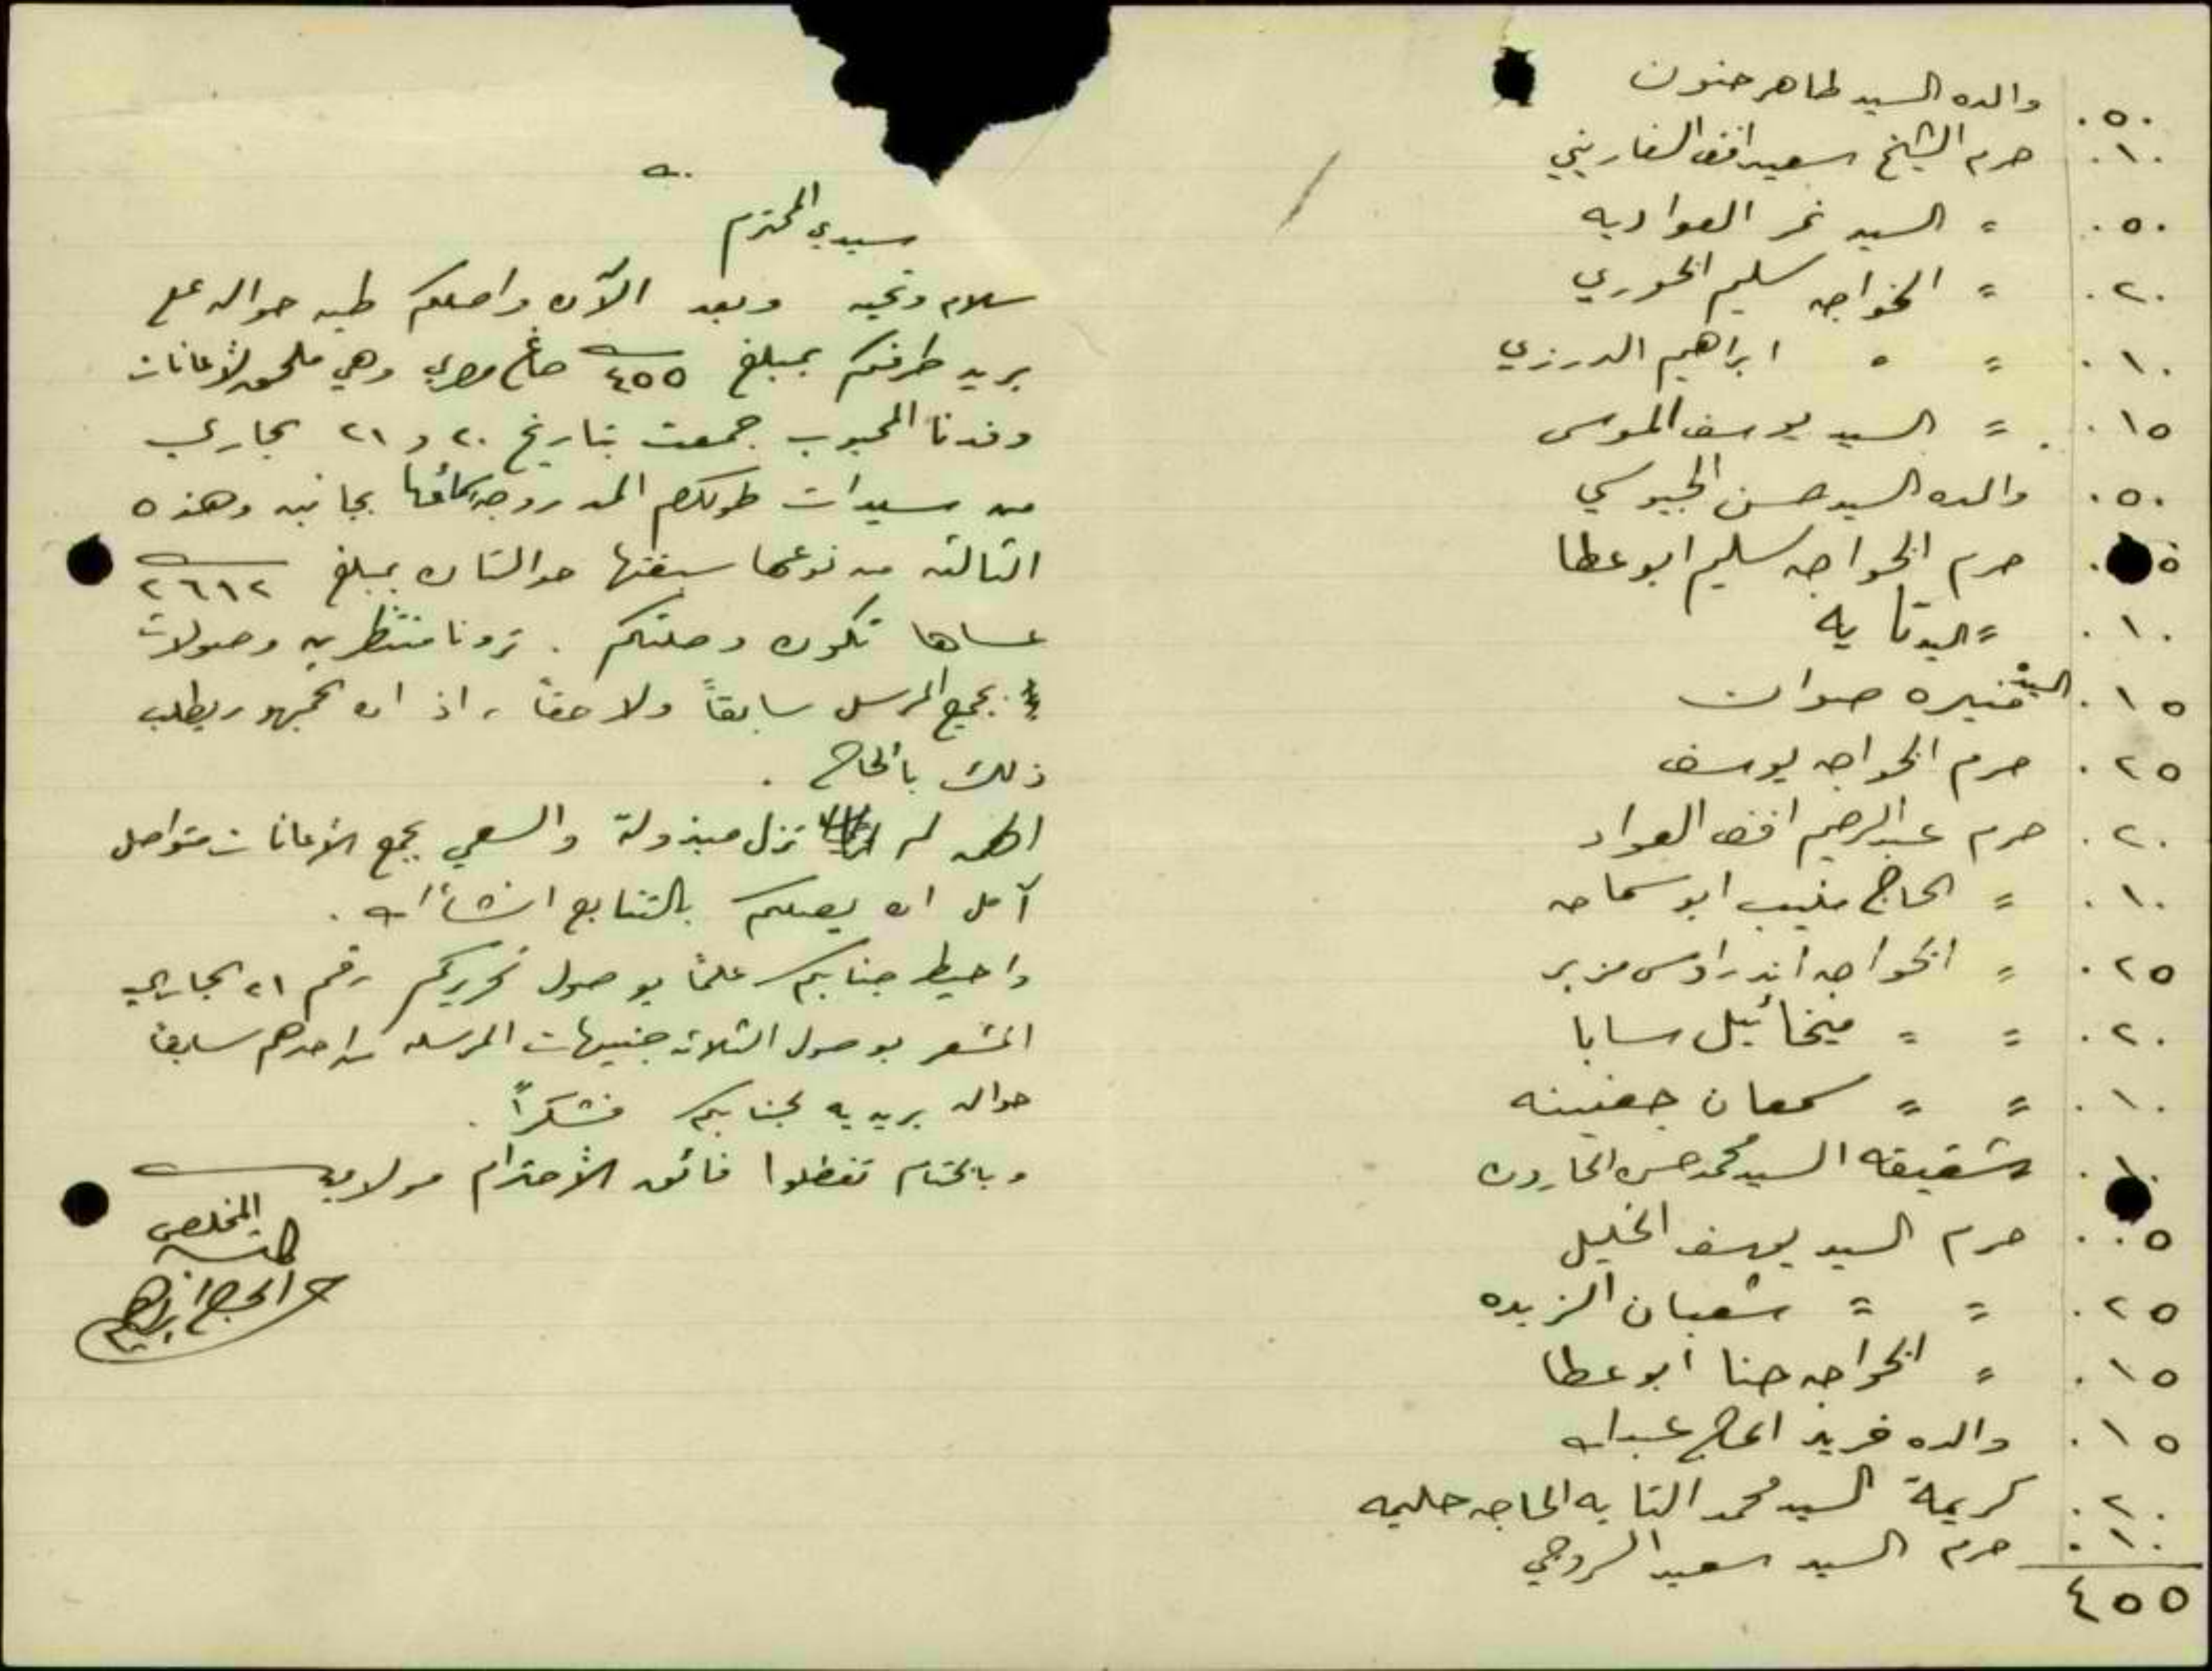 ٠٥٠ والده السيد طاهر حنون
٠١٠ حرم الشيخ سعيد افندي السفاريني
٠٥٠ = السيد نمر العواديه
٠٢٠ = الخواجه سليم الخوري
٠١٠ = = ابراهيم الدرزي
٠١٥ = السيد يوسف الموسى
٠٥٠ والده السيد حسن الجيوسي
حرم الخواجه سليم ابو عطا
٠١٠ =
٠١٥ السيده منيره صوان
٠٢٥ حرم الخواجه يوسف
٠٢٠ حرم عبد الرحيم افندي العواد
٠١٠ = الحاج منيب ابو سماحه
٠٢٥ = الخواجه اندراوس مزبر
٠٢٠ = = ميخائيل سابا
٠١٠ = = سمعان جفينه
٠١٠ شقيقه السيد محمد حسن الحارون
٠٠٥ حرم السيد يوسف الخليل
٠٢٥ = = شعبان الزبده
٠١٥ = الخواجه حنا ابو عطا
٠١٥ والده فريد الحاج عبد الله
٠٢٠ كريمة السيد محمد التايه الحاجه حليمه
٠١٠ حرم السيد سعيد السروجي
٤٥٥
سيدي المحترم
سلام وتحيه وبعد الآن واصلكم طيه حواله على
بريد طرفكم بمبلغ ٤٥٥ صاغ مصري وهي ملحق لأعانات
وفدنا المحبوب جمعت بتاريخ ٢٠ و ٢١ الجاري
من سيدات طولكرم المدروجه اسمائها بجانبه وهذه
الثالثه من نوعها سبقتها حوالتان بمبلغ ٢٦١٢
عساها تكون وصلتكم . ترونا منتظرين وصولات
بجميع المرسل سابقاً ولاحقاً ، اذ ان الجمهور يطلب
ذلك بالحاح .
الهمه لم تزل مبذولة والسعي بجمع الأعانات متواصل
آمل ان يصلكم بالتتابع انشاء الله .
واحيط جنابكم علماً بوصول تحريركم رقم ٢١ الجاري
المشعر بوصول الثلاثه جنيهات المرسله من احدهم سابقاً
حواله بريديه لجنابكم فشكراً .
وبالختام تفضلوا فائق الأحترام مولاي
المخلص
الحاج ابراهيم